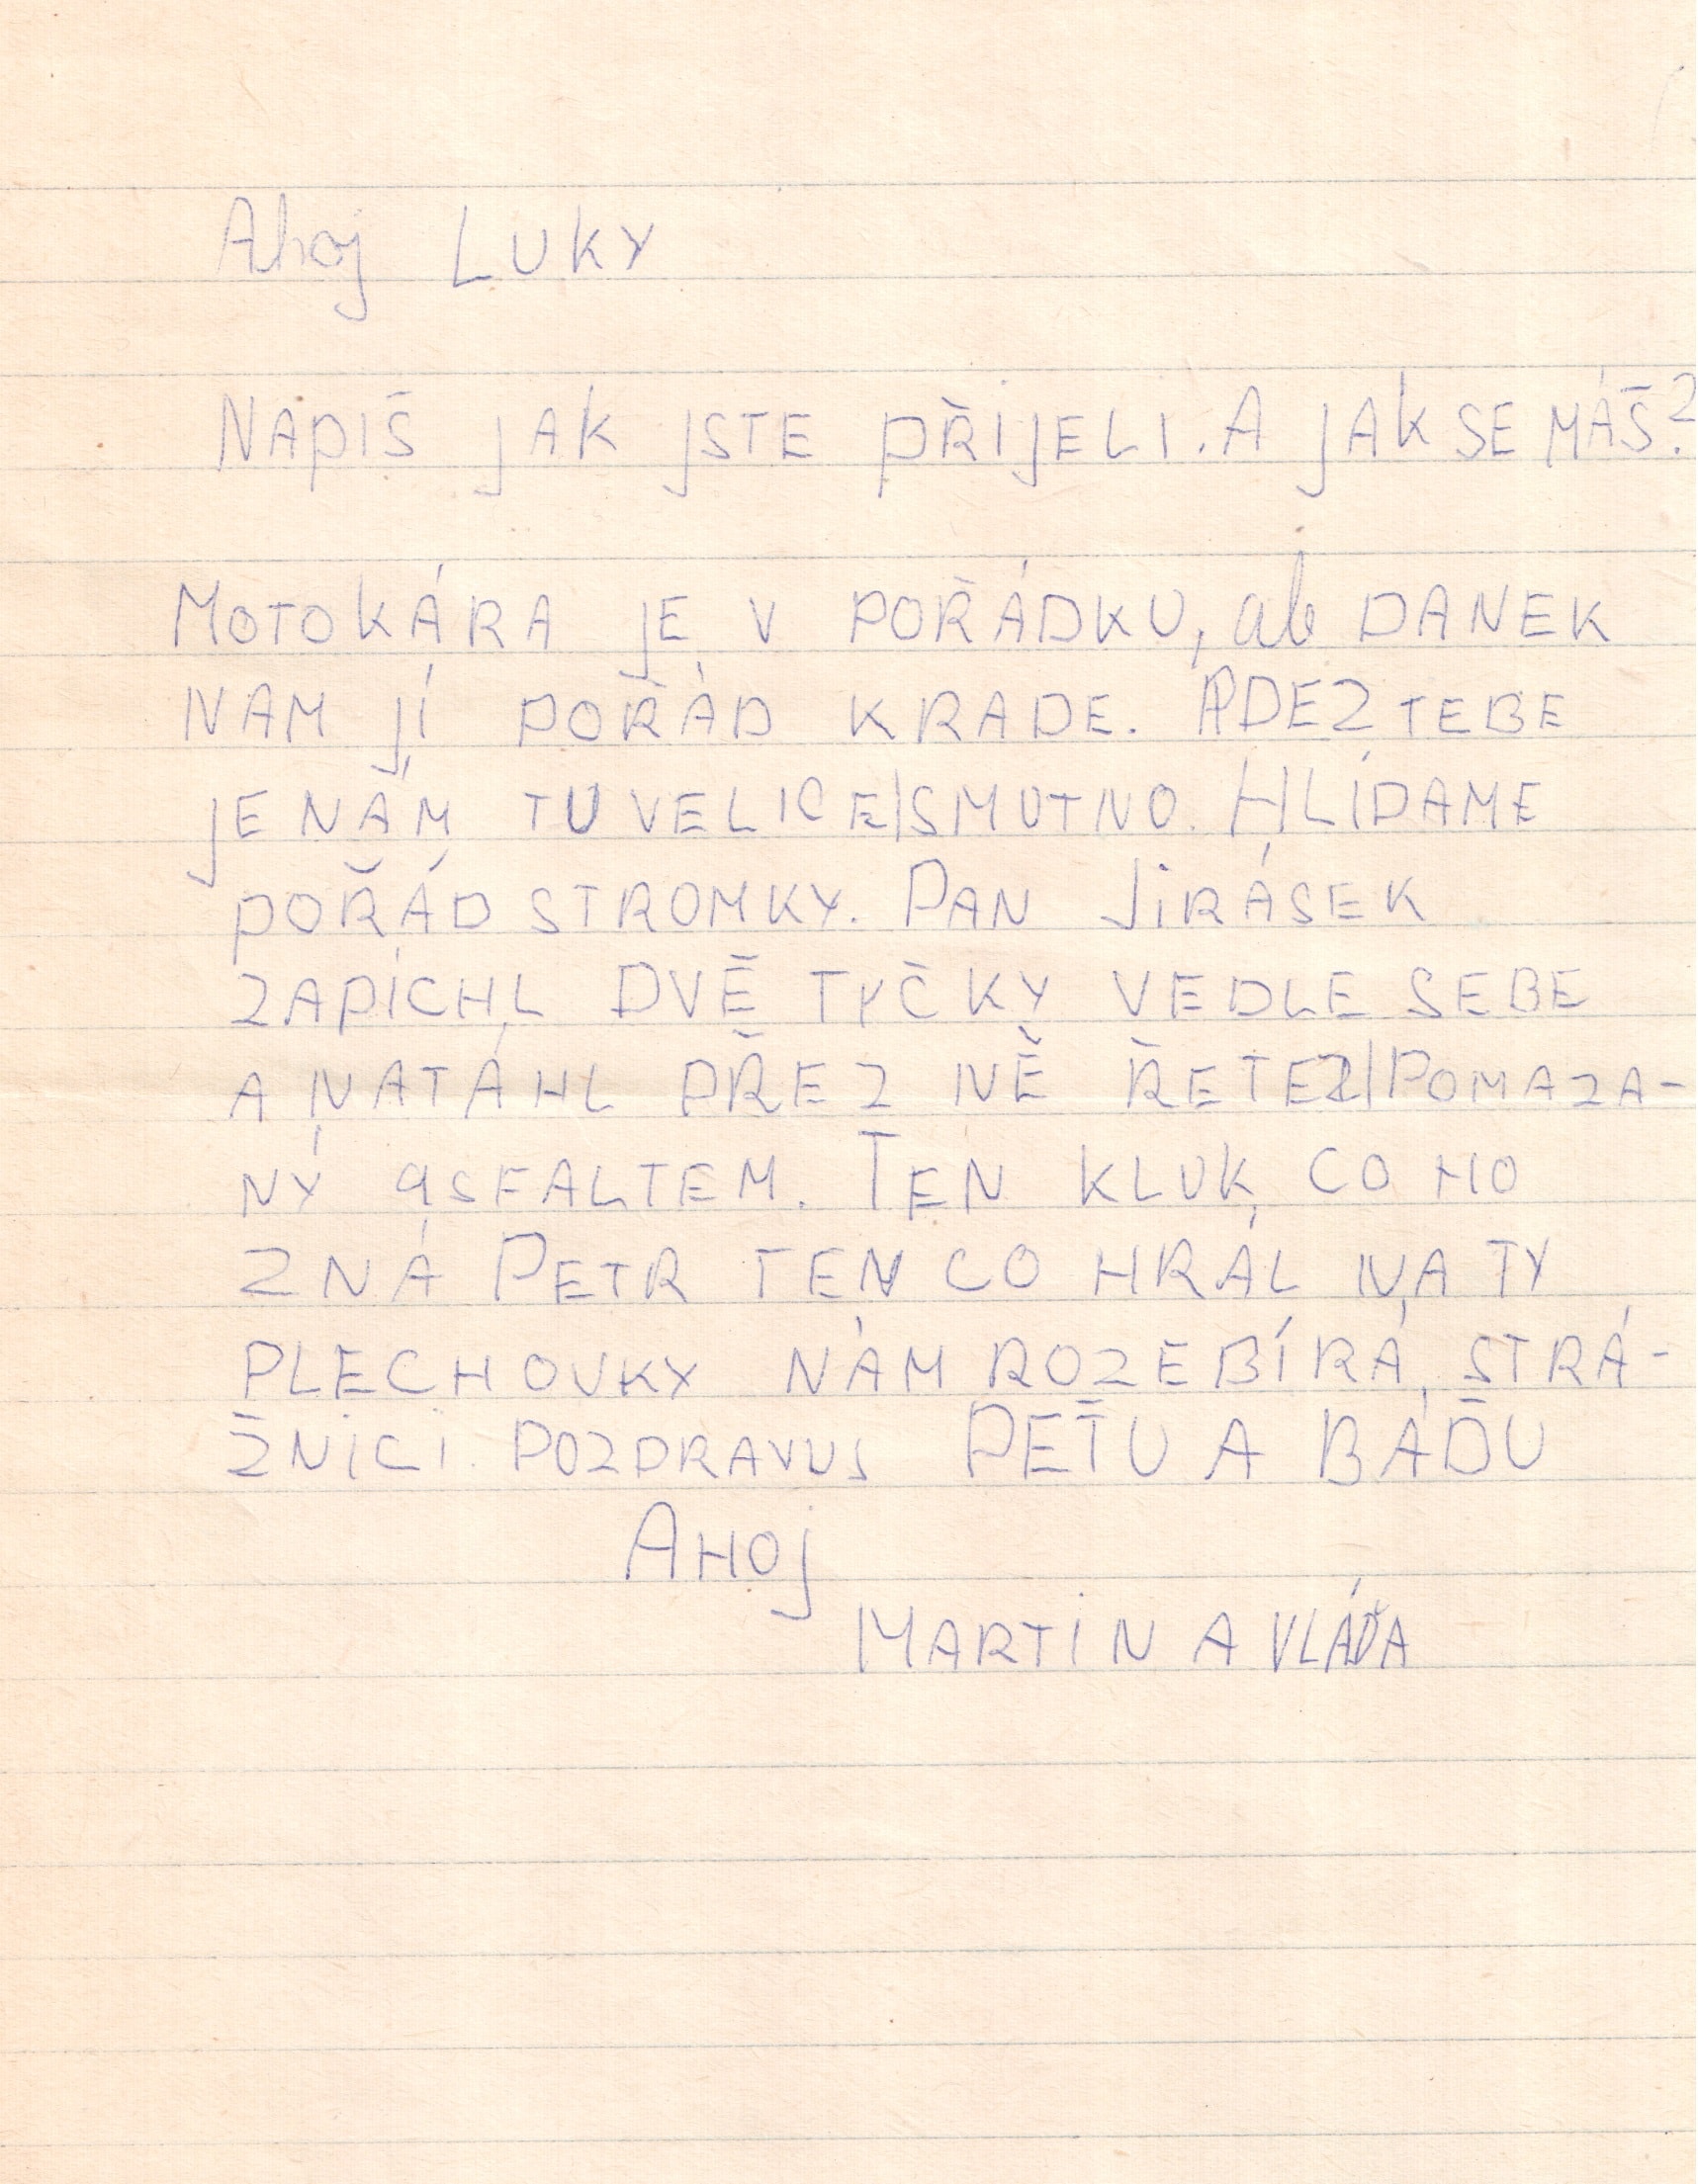 Ahoj LUKY
NAPIŠ JAK JSTE PŘIJELI. A JAK SE MÁŠ?
MOTOKÁRA JE V POŘÁDKU, ale DANEK
NAM JÍ POŘÁD KRADE. PDEZ TEBE
JE NÁM TU VELICE|SMUTNO. HLÍDAME
POŘÁD STROMKY. PAN JIRÁSEK
ZAPÍCHL DVĚ TYČKY VEDLE SEBE
A NATÁHL PŘEZ NĚ ŘETEZ|POMAZA-
NÝ ASFALTEM. TEN KLUK CO HO
ZNÁ PETR TEN CO HRÁL NA TY
PLECHOVKY NÁM ROZEBÍRÁ STRÁ-
ŽNICI. POZDRAVUJ PEŤU A BÁĎU
AHOJ
MARTIN A VLÁĎA